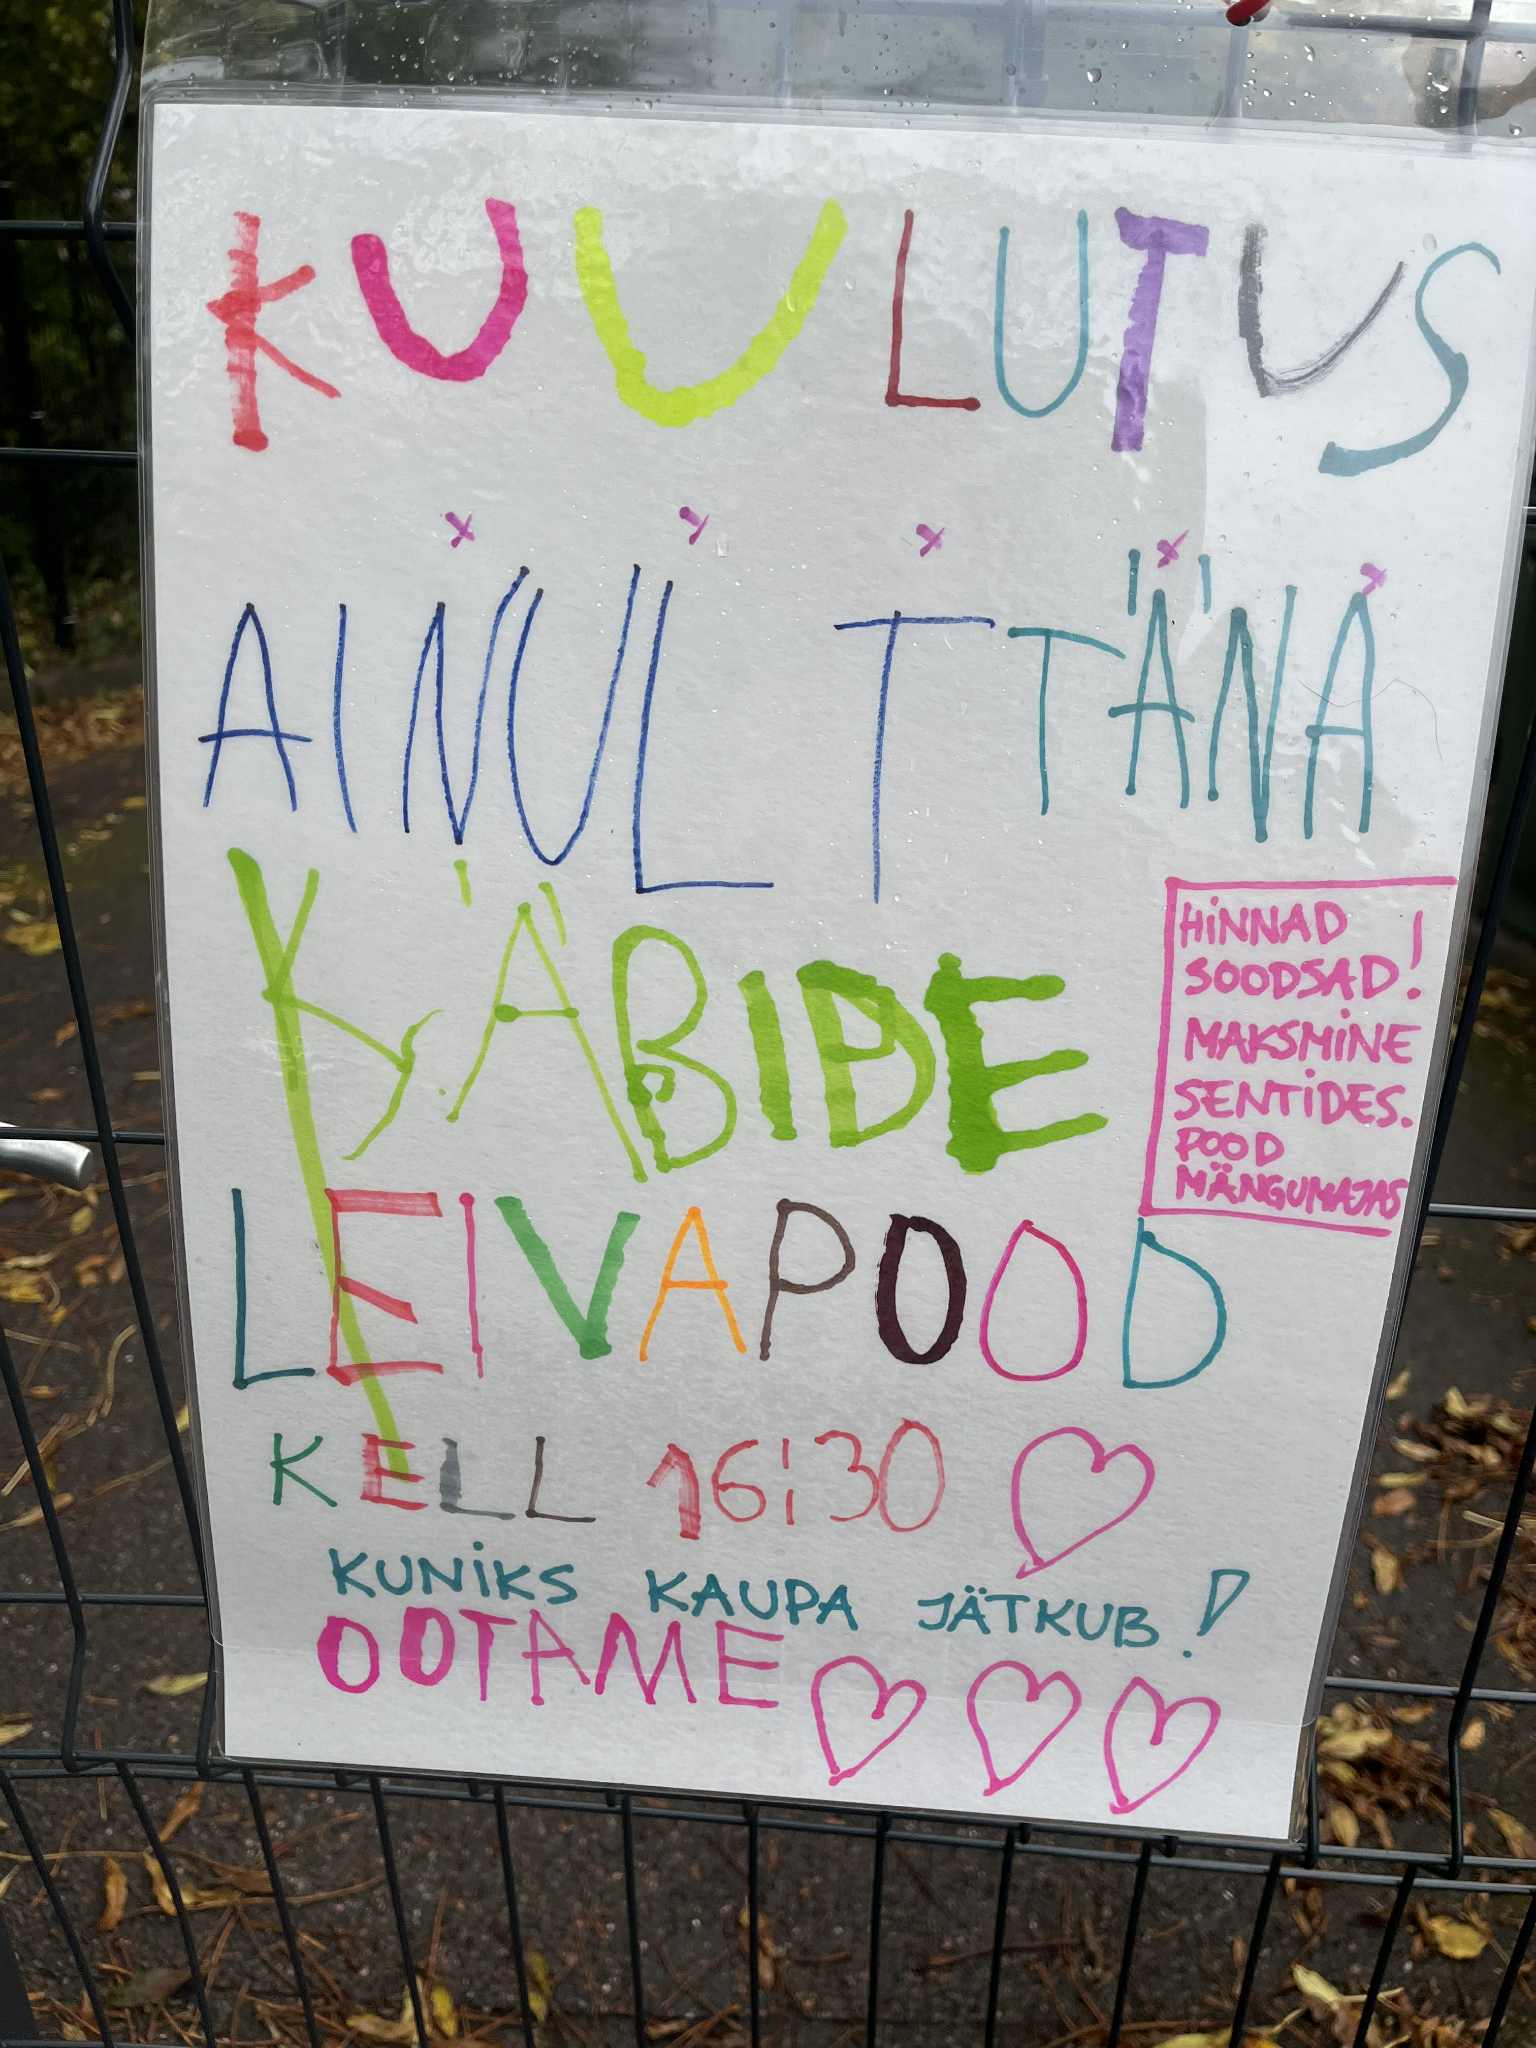 KUULUTUS
AINULT TÄNA
KÄBIDE
LEIVAPOOD
KELL 16:30
KUNIKS KAUPA JÄTKUB!
OOTAME
HINNAD
SOODSAD!
MAKSMINE
SENTIDES.
POOD
MÄNGUMAJAS